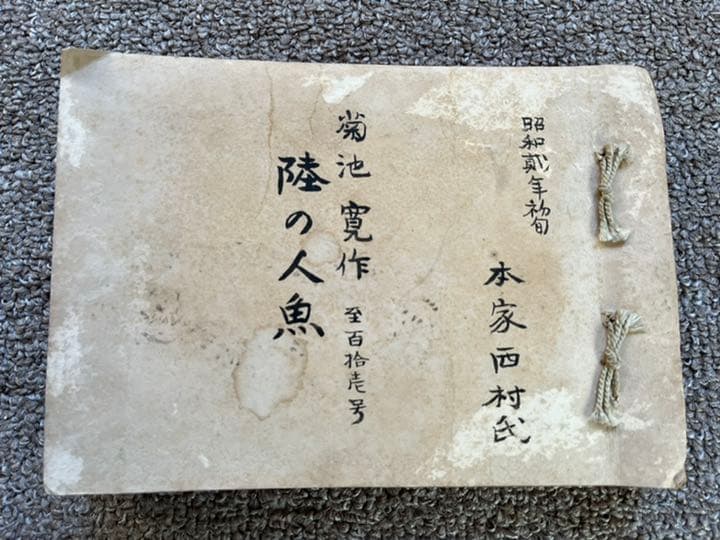 昭和貳年初旬
本家西村氏
菊池寛作 至百拾壱号
陸の人魚